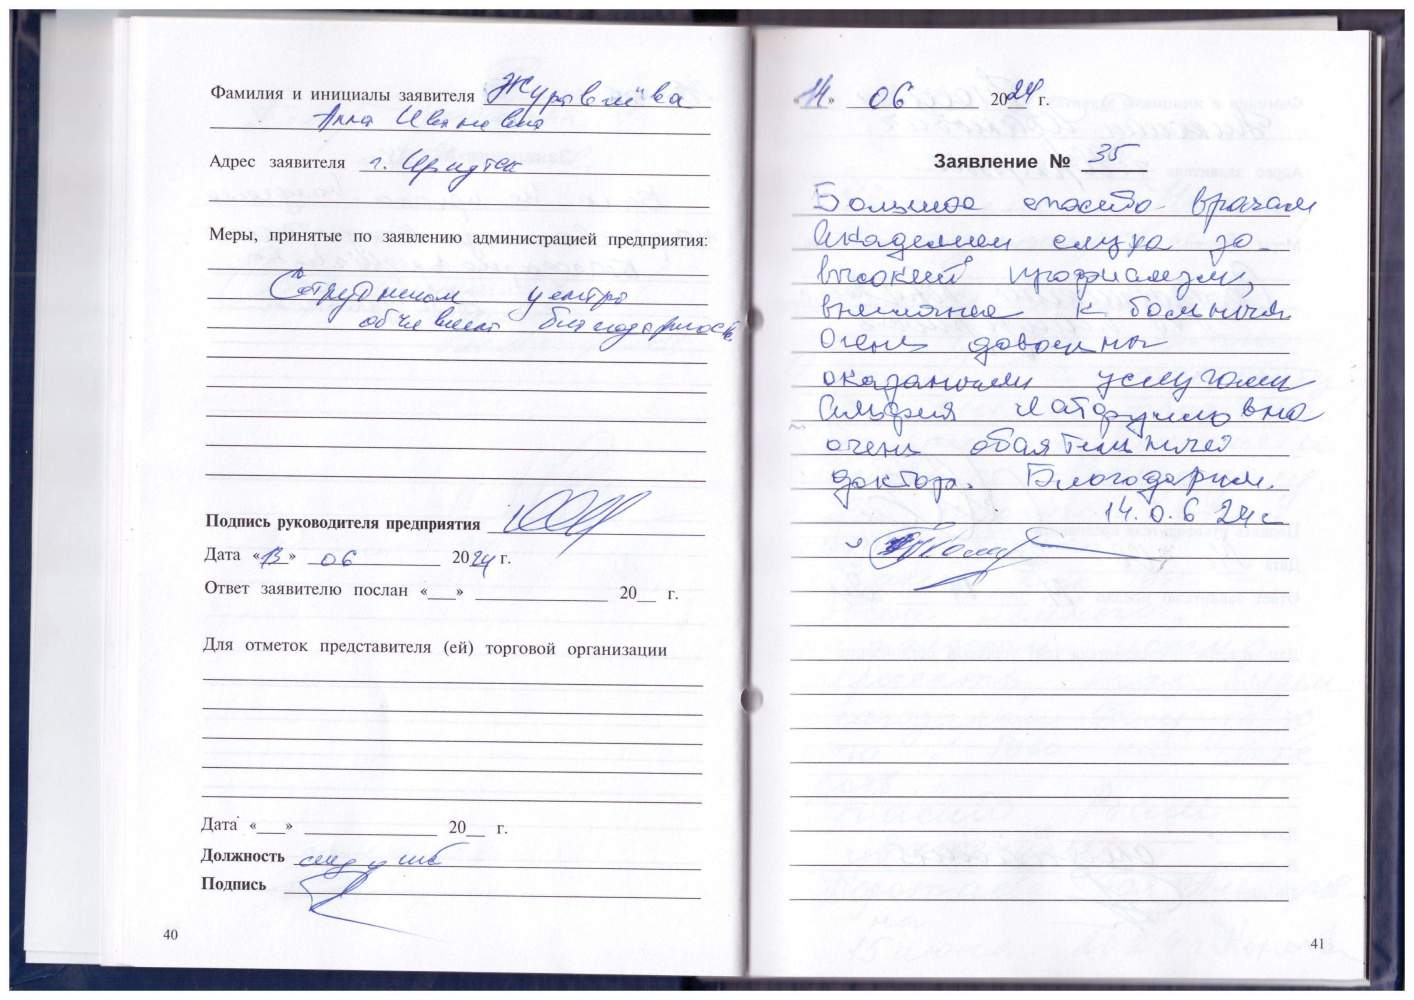 Фамилия и инициалы заявителя Журавлёва
Алла Ивановна
Адрес заявителя г. Иркутск
Меры, принятые по заявлению администрацией предприятия:
Сотрудникам центра
объявлена благодарность.
Подпись руководителя предприятия
Дата «13» 06 2024 г.
Ответ заявителю послан «___» ______ 20__ г.
Для отметок представителя (ей) торговой организации
Дата «___» ______ 20__ г.
Должность
Подпись
40
«14» 06 2024 г.
Заявление № 35
Большое спасибо врачам
Академии слуха за
высокий
внимание к больным
Очень довольны
оказанными услугами
очень обаятельный
доктор. Благодарим.
14.0.6 24г
41